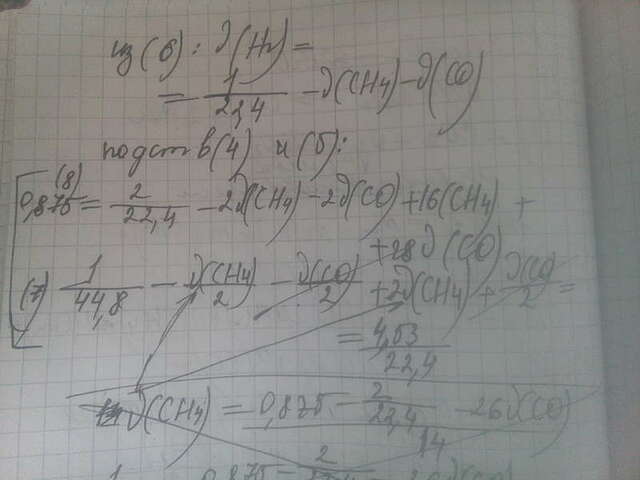 из (6): ν(H₂) =
= 1/22,4 - ν(CH₄) - ν(CO)
подст в (4) и (5):
(8) 0,875 = 2/22,4 - 2ν(CH₄) - 2ν(CO) + 16(CH₄) +
+ 28ν(CO)
(7) 1/44,8 - ν(CH₄)/2 - ν(CO)/2 + 2ν(CH₄) + ν(CO)/2 =
= 4,53/22,4
ν(CH₄) = 0,875 - 2/22,4 - 26ν(CO)
14
0,875 - 2